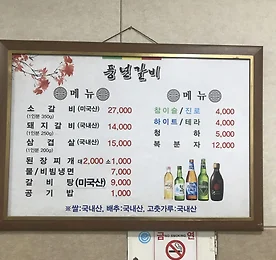 풍년갈비
메뉴
소갈비(미국산) 27,000
(1인분 350g)
돼지갈비(국내산) 14,000
(1인분 250g)
삼겹살(국내산) 15,000
(1인분 200g)
된장찌개 대2,000 소1,000
물/비빔냉면 7,000
갈비탕(미국산) 9,000
공기밥 1,000
메뉴
참이슬/진로 4,000
하이트/테라 4,000
청하 5,000
복분자 12,000
※쌀:국내산, 배추:국내산, 고춧가루:국내산
금연